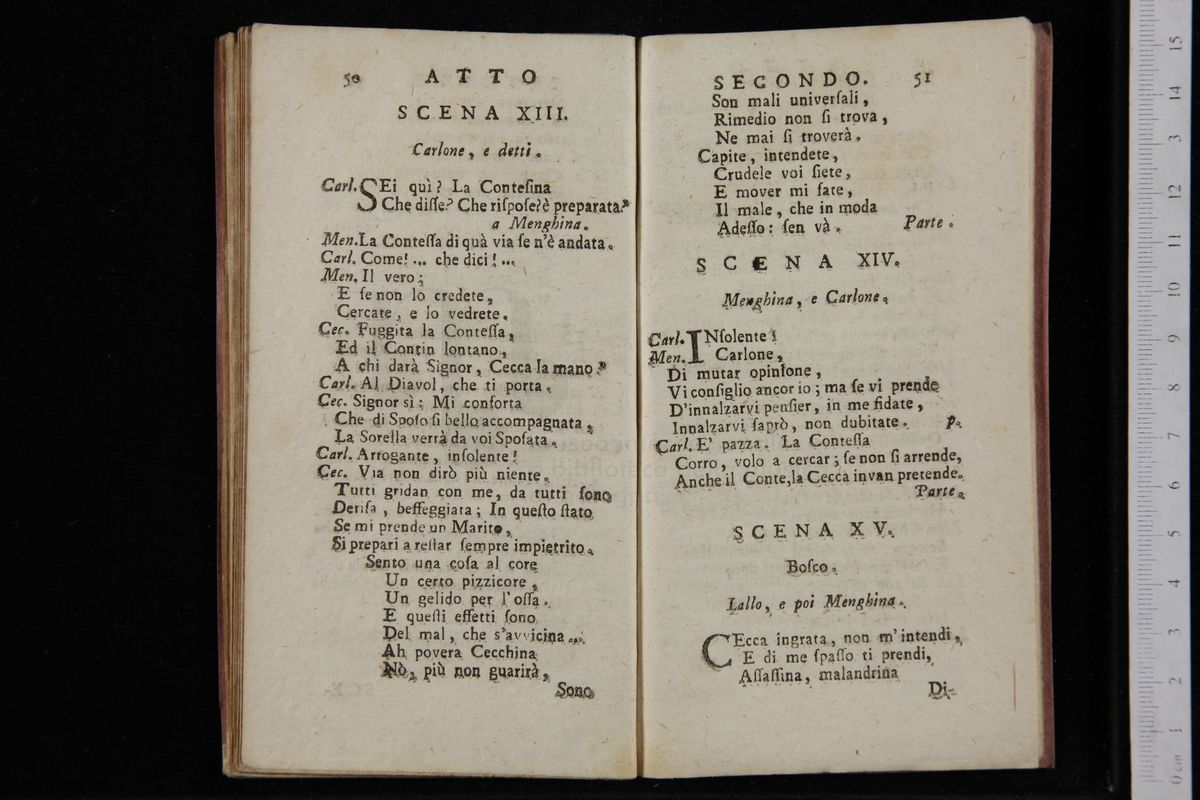 50 ATTO
SCENA XIII.
Carlone, e detti.
Carl. SEi quì? La Contesina
Che disse? Che rispose? è preparata?
a Menghina.
Men. La Contessa di quà via se n'è andata.
Carl. Come!... che dici!...
Men. Il vero;
E se non lo credete,
Cercate, e lo vedrete.
Cec. Fuggita la Contessa,
Ed il Contin lontano,
A chi darà Signor, Cecca la mano?
Carl. Al Diavol, che ti porta.
Cec. Signor sì: Mi conforta
Che di Sposo sì bello accompagnata,
La Sorella verrà da voi Sposata.
Carl. Arrogante, insolente!
Cec. Via non dirò più niente.
Tutti gridan con me, da tutti sono
Derisa, beffeggiata; In questo stato
Se mi prende un Marito,
Si prepari a restar sempre impietrito.
Sento una cosa al core
Un certo pizzicore,
Un gelido per l'ossa.
E questi effetti sono
Del mal, che s'avvicina...
Ah povera Cecchina
Nò, più non guarirà,
Sono
SECONDO. 51
Son mali universali,
Rimedio non si trova,
Ne mai si troverà.
Capite, intendete,
Crudele voi siete,
E mover mi fate,
Il male, che in moda
Adesso: sen và. Parte.
SCENA XIV.
Menghina, e Carlone.
Carl. INsolente!
Men. Carlone,
Di mutar opinione,
Vi consiglio ancor io; ma se vi prende
D'innalzarvi pensier, in me fidate,
Innalzarvi saprò, non dubitate. p.
Carl. E' pazza. La Contessa
Corro, volo a cercar; se non si arrende,
Anche il Conte, la Cecca invan pretende.
Parte.
SCENA XV.
Bosco.
Lallo, e poi Menghina.
CEcca ingrata, non m'intendi,
E di me spasso ti prendi,
Assassina, malandrina
Di-